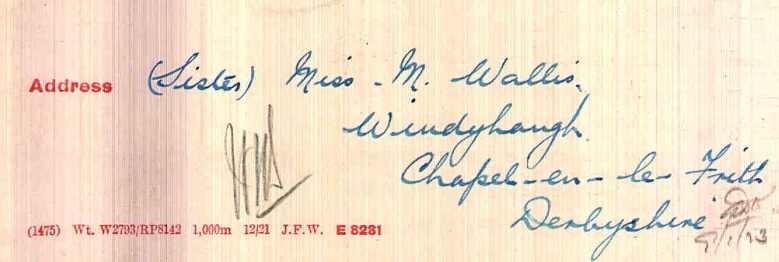 Address (Sister) Miss - M. Wallis.
Windyhaugh
Chapel-en-le-Frith
Derbyshire
9/1/23
(1475) Wt. W2793/RP8142 1,000m 12/21 J.F.W. E 8281